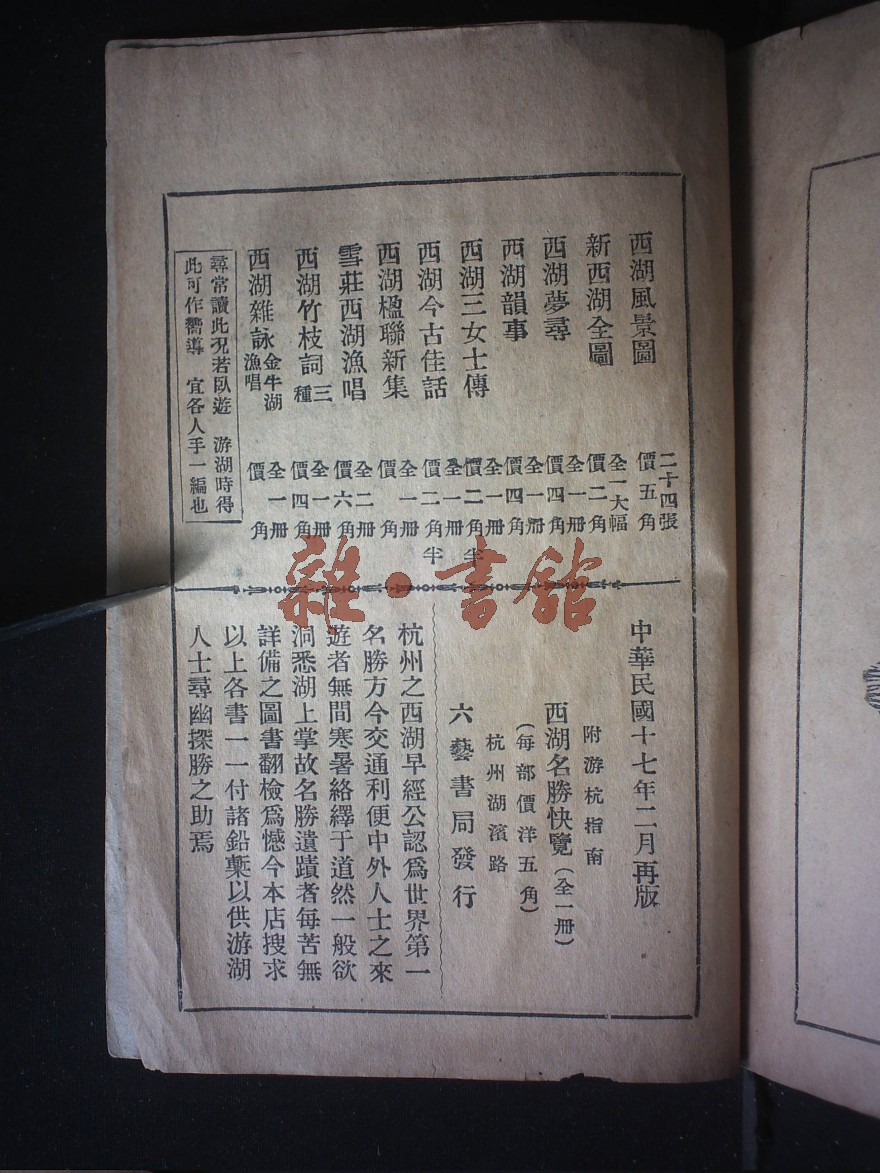 西湖風景圖 二十四張 價五角
新西湖全圖 全一大幅 價二角
西湖夢尋 全一冊 價四角
西湖韻事 全一冊 價四角
西湖三女士傳 全一冊 價二角半
西湖今古佳話 全一冊 價二角半
西湖楹聯新集 全一冊 價角
雪莊西湖漁唱 全二冊 價六角
西湖竹枝詞三種 全一冊 價四角
西湖雜詠金牛湖漁唱 全一冊 價角
尋常讀此況若臥遊 游湖時得
此可作嚮導 宜各人手一編也
中華民國十七年二月再版
附游杭指南
西湖名勝快覽(全一冊)
(每部價洋五角)
杭州湖濱路
六藝書局發行
杭州之西湖早經公認爲世界第一
名勝方今交通利便中外人士之來
遊者無間寒暑絡繹于道然一般欲
洞悉湖上掌故名勝遺蹟者每苦無
詳備之圖書翻檢爲憾今本店搜求
以上各書一一付諸鉛槧以供游湖
人士尋幽探勝之助焉
雜·書館